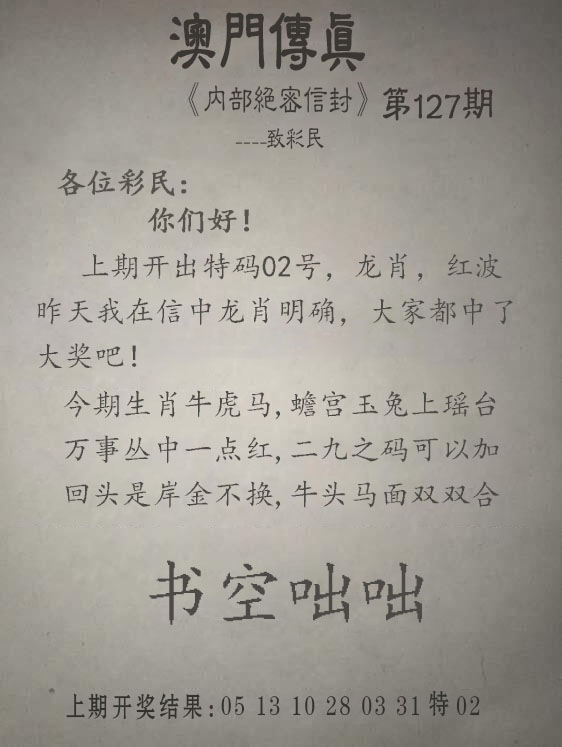 澳門傳眞
《内部絕密信封》第127期
----致彩民
各位彩民：
你们好！
上期开出特码02号，龙肖，红波
昨天我在信中龙肖明确，大家都中了
大奖吧！
今期生肖牛虎马,蟾宫玉兔上瑶台
万事丛中一点红,二九之码可以加
回头是岸金不换,牛头马面双双合
书空咄咄
上期开奖结果:05 13 10 28 03 31 特 02